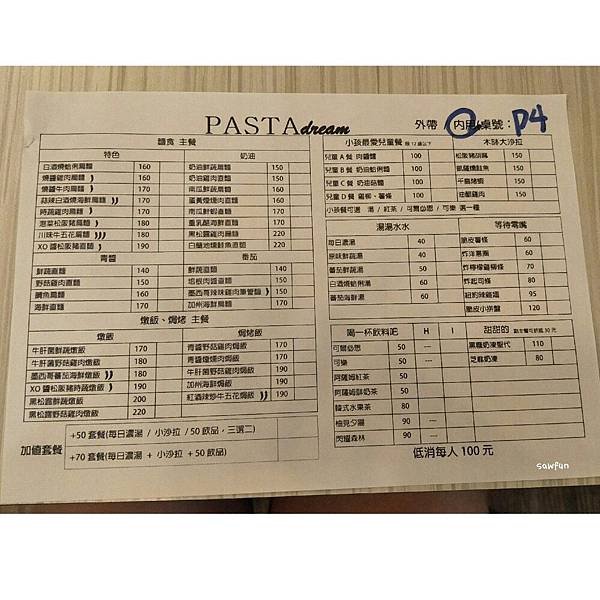 PASTA dream
外帶 / 內用 / 桌號： P4
麵食 主餐
特色
白酒燒蛤蜊扁麵 160
燒醬雞肉扁麵 160
燒醬牛肉扁麵 170
蒜辣白酒燒海鮮扁麵 170
時蔬雞肉扁麵 170
泡菜松阪豬扁麵 180
川味牛五花扁麵 180
XO 醬松阪豬直麵 190
奶油
奶油鮮蔬扁麵 150
奶油雞肉直麵 150
南瓜鮮蔬直麵 160
蛋黃燻肉直麵 160
南瓜鮮蝦直麵 170
重乳酪海鮮直麵 170
黑松露雞肉扁麵 220
白蘭地燻鮭魚直麵 220
青醬
鮮蔬直麵 140
野菇雞肉直麵 160
鯛魚扁麵 160
海鮮直麵 170
番茄
鮮蔬直麵 140
培根肉醬直麵 150
墨西哥辣味雞肉筆管麵 150
加州海鮮扁麵 170
燉飯、焗烤 主餐
燉飯
牛肝菌鮮蔬燉飯 170
牛肝菌野菇雞肉燉飯 180
墨西哥蕃茄海鮮燉飯 180
XO 醬松阪豬時蔬燉飯 190
黑松露鮮蔬燉飯 200
黑松露野菇雞肉燉飯 220
焗烤飯
青醬野菇雞肉焗飯 170
青醬燻雞肉焗飯 170
牛肝菌野菇雞焗飯 190
加州海鮮焗飯 190
紅酒辣炒牛五花焗飯 190
加值套餐
+50 套餐(每日濃湯 / 小沙拉 / 50 飲品，三選二)
+70 套餐(每日濃湯 + 小沙拉 + 50 飲品)
小孩最愛兒童餐 限 12 歲以下
兒童 A 餐 肉醬麵 100
兒童 B 餐 奶油蛤蜊麵 100
兒童 C 餐 奶油菇麵 100
兒童 D 餐 雞柳、薯條 100
小孩餐可選 湯 / 紅茶 / 可爾必思 / 可樂 選一種
木缽大沙拉
松阪胡麻 150
凱薩燻鮭魚 150
千島烤蝦 150
油醋雞肉 150
湯湯水水
每日濃湯 40
原味鮮蔬湯 40
番茄鮮蔬湯 50
白酒燒蛤蜊湯 60
番茄海鮮湯 60
等待零嘴
脆皮薯條 60
炸洋蔥圈 60
炸檸檬雞柳條 70
炸起司條 80
紐約辣雞翅 95
脆皮小拼盤 120
喝一杯飲料吧 H I
可爾必思 50 ---
可樂 50 ---
阿薩姆紅茶 50
阿薩姆鮮奶茶 50
韓式水果茶 80
柚見夕陽 90 ---
閃耀森林 90 ---
甜甜的 點主餐可折抵 30 元
黑糖奶凍聖代 110
芝麻奶凍 80
低消每人 100 元
sawfun